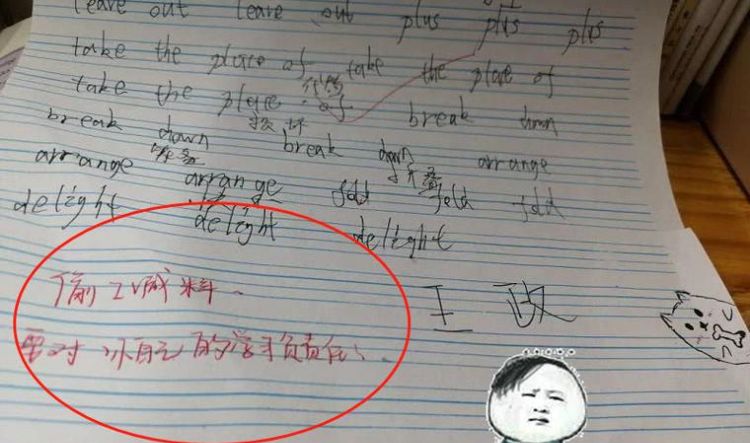 leave out leave out plus plus plus
take the place of take the place of
take the place of 代替 break down
break down 损坏 break down arrange
arrange 准备 arrange fold 折叠 fold fold
delight delight delight
偷工减料、
要对你自己的学习负责任!
王政